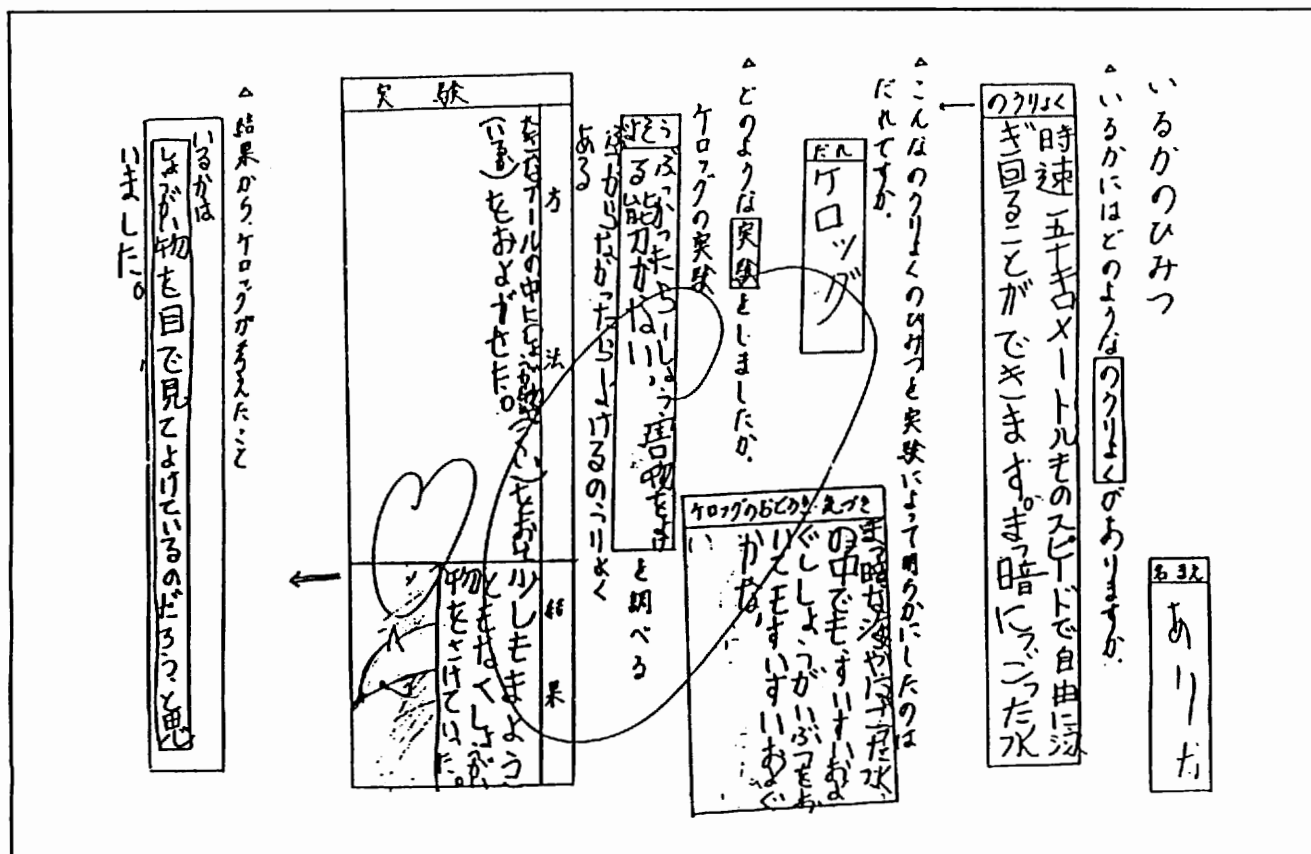 いるかのひみつ
名まえ
ありた
▵いるかにはどのようなのうりょくがありますか。
のうりょく
時速五十キロメートルものスピードで自由に泳
ぎ回ることができます。まっ暗にごった水
▵こんなのうりょくのひみつを実験によって明らかにしたのは
だれですか。
だれ
ケロッグ
▵どのような実験をしましたか。
ケロッグのおどろき・気づき
まっ暗な海やにごった水
の中でも、すいすいおよ
ぐししょうがいぶつをお
いてもすいすいおよぐ
かな
い
ケロッグの実験
よそう
ぶつかったらしょう害物をよけ
る能力がない。
を調べる
ぶつからなかったらよけるのうりょく
ある
実験
方法
大きなプールの中にしょうがい物(てつ)をおき
(いるか)をおよがせた。
結果
少しもまよう
こともなくしょうがい
物をさけていた。
▵結果から、ケロッグが考えたこと
いるかは
しょうがい物を目で見てよけているのだろうと思
いました。